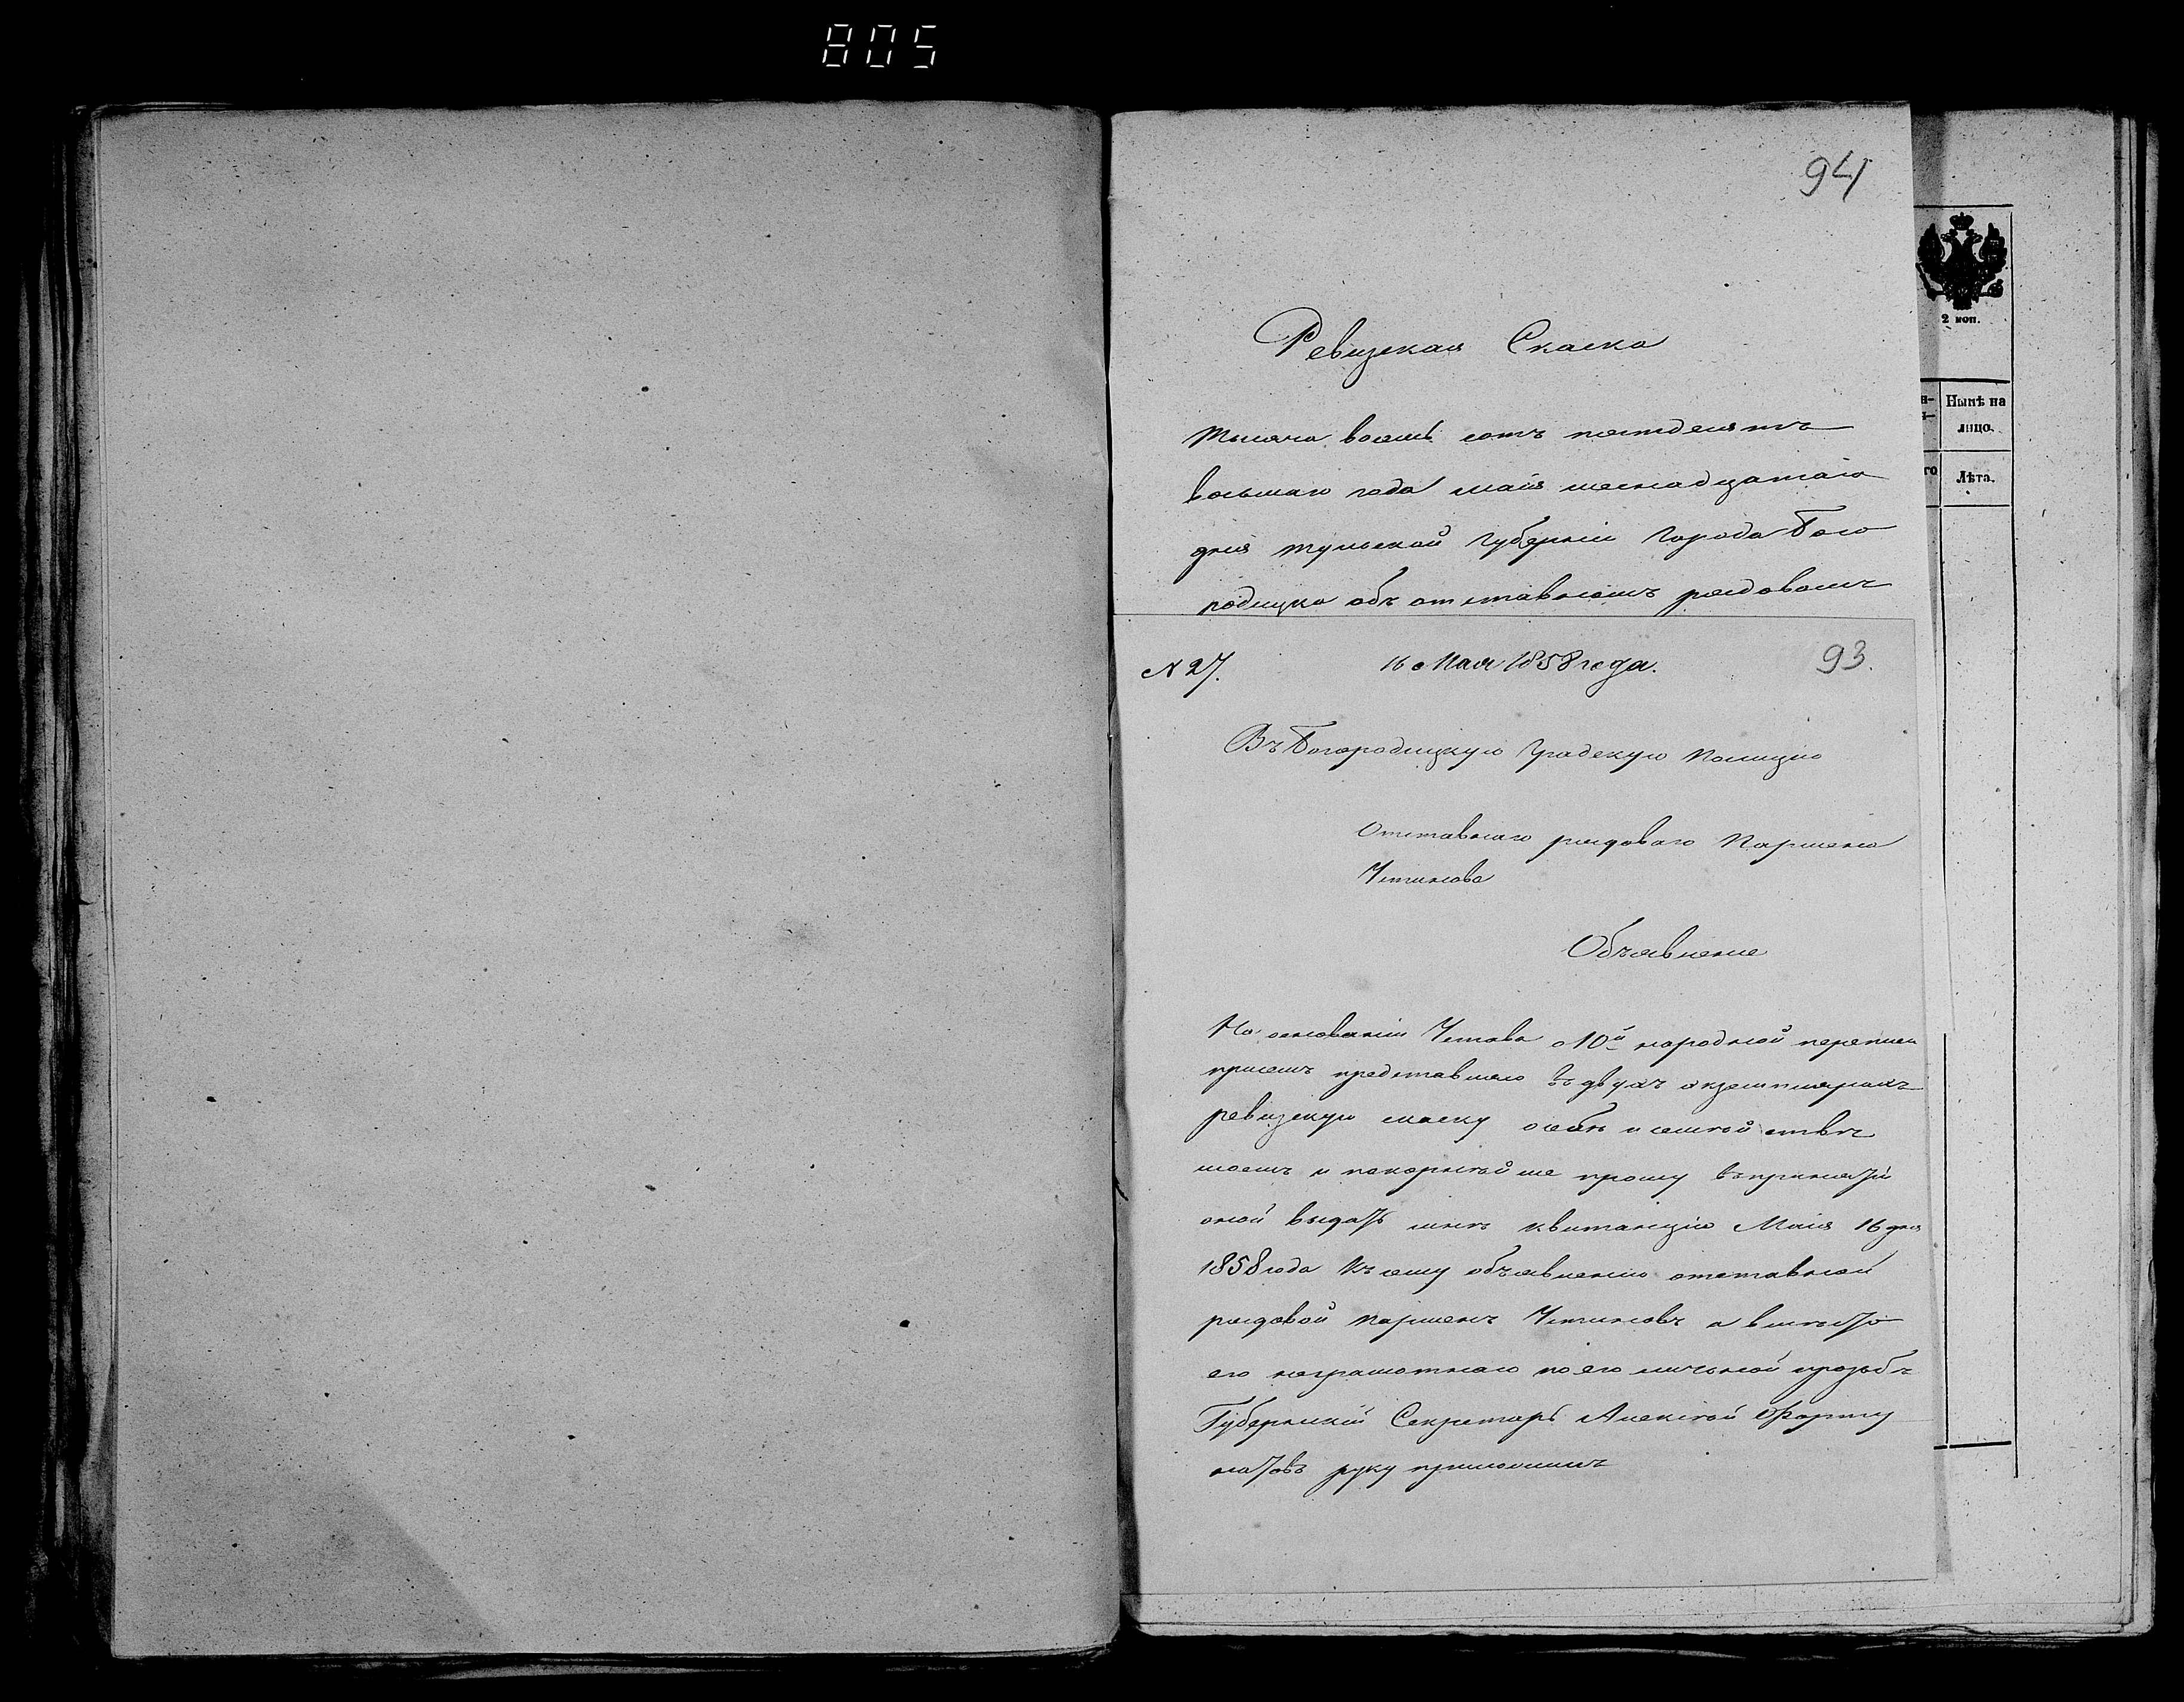 805
94
2 коп.
Нынѣ на
лицо.
го
Лѣта.
Ревизская Скаска
тысяча восемь сотъ пятьдесятъ
восьмаго года маія шеснадцатаго
дня тульской губерніи города Бого
родицка объ отставномъ рядовомъ
N 27.
16 Мая 1858 года.
93.
Въ Богородицкую Градскую Полицію
Отставнаго рядоваго Парменa
Устинова
Объявленіе
На основаніи Устава о 10й народной переписи
присемъ представляю въ двухъ экземплярахъ
ревизскую скаску о себѣ и семействѣ
моемъ и покорнейше прошу въ принятіи
оной выдать мнѣ квитанцію Маія 16 дня
1858 года Къ сему объявленію отставной
рядовой Парменъ Устиновъ а вместо
его неграмотнаго по его личной прозьбѣ
Губернскій Секретарь Алексей Форту
натовъ руку приложилъ